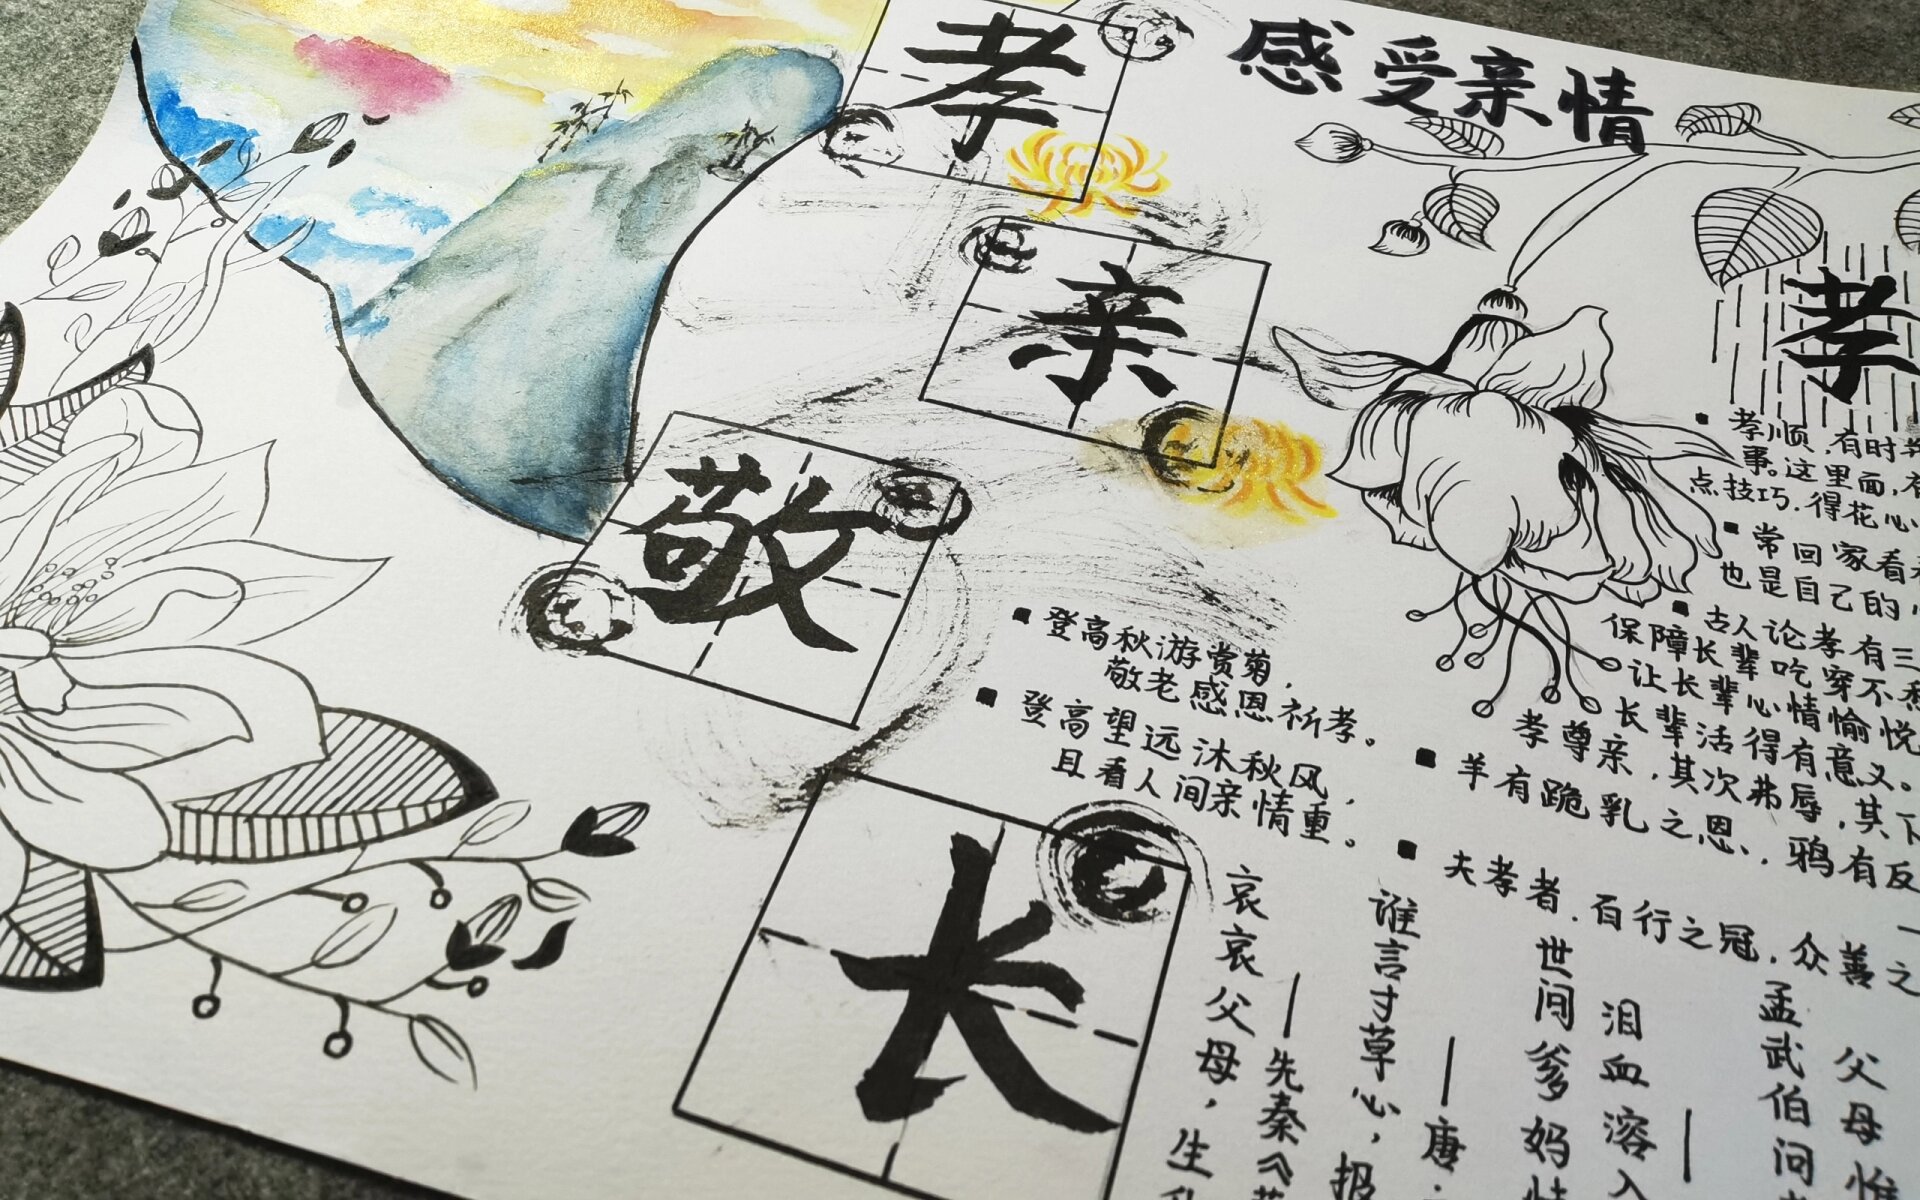 感受亲情
孝
亲
敬
长
孝
孝顺,有时
事。这里面,有
点技巧.得花心
常回家看
也是自己的
古人论孝有三
保障长辈吃穿不
让长辈心情愉悦
长辈活得有意义。
孝尊亲,其次弗辱,其下
羊有跪乳之恩.,鸦有反
夫孝者.百行之冠,众善之
登高秋游赏菊,
敬老感恩祈孝。
登高望远沐秋风,
且看人间亲情重。
哀哀父母,生
—先秦《
谁言寸草心,报
—唐·
世间爹妈情
泪血溶入
—
孟武伯问
父母